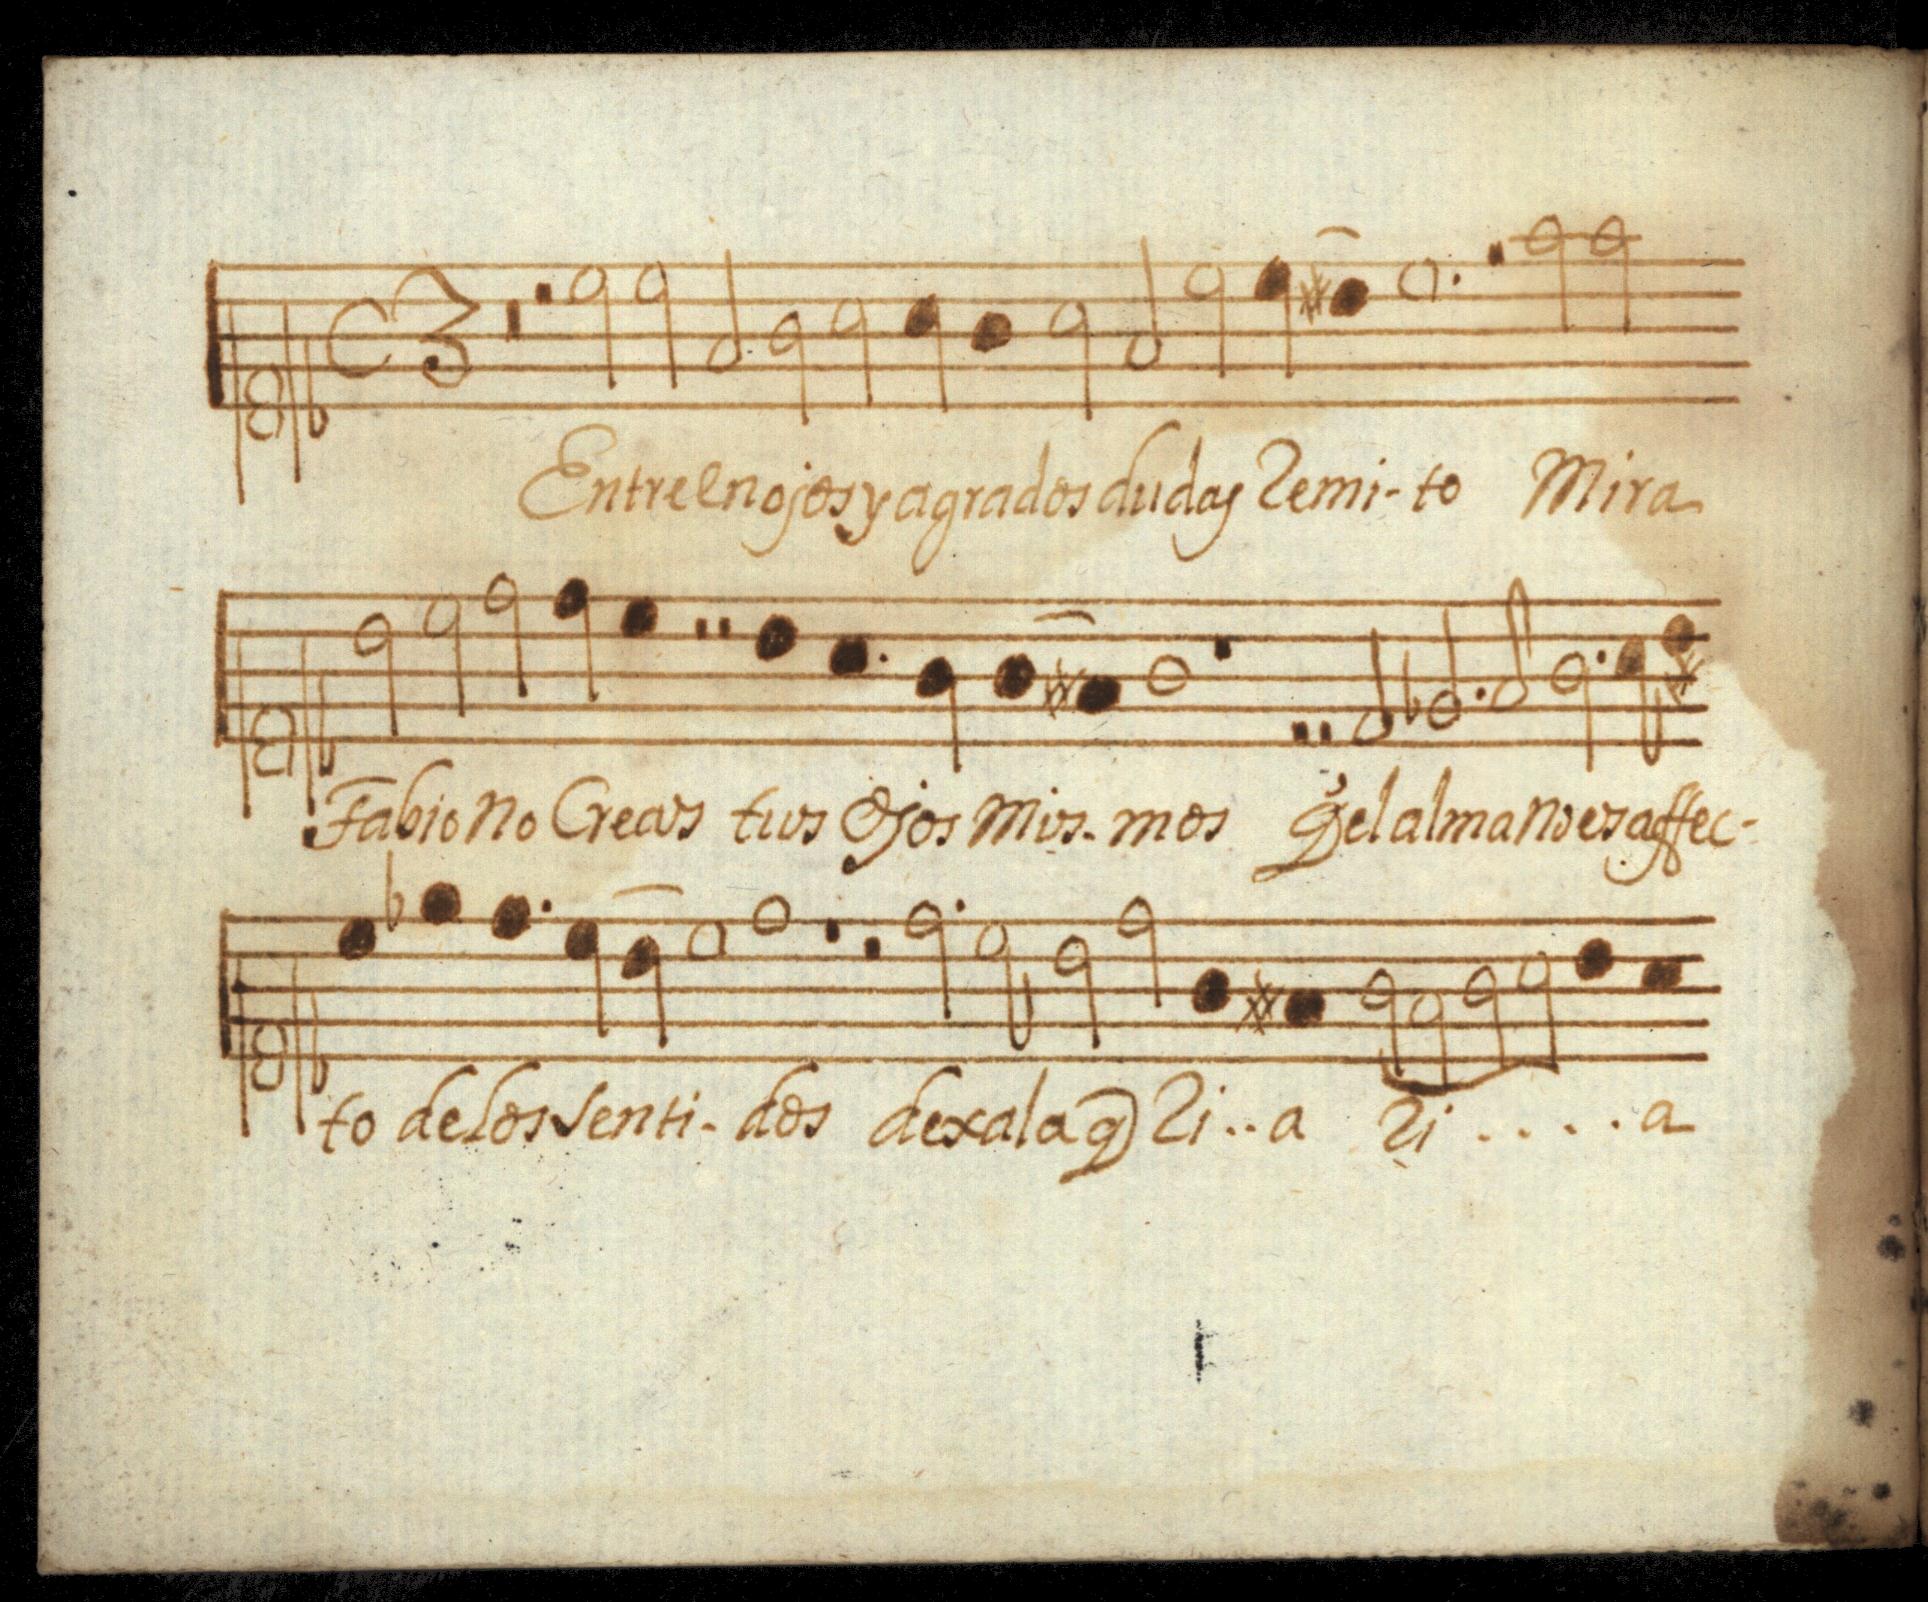 Entre enojos y agrados dudas Remi-to Mira
Fabio no Creas tus Ojos Mis-mos q̃ el alma no es affec-
to de los senti-dos dexala q̃ Ri..a Ri ....a